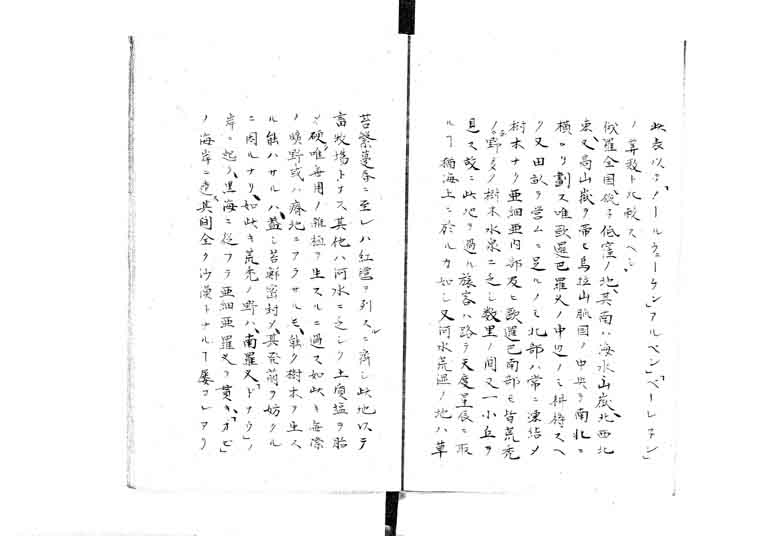 此表以テ「ノールウェーケン」「アルペン」「ベーレネン」
ノ算数ト比較スヘシ
俄羅全国概子低窪ノ地、其南ハ海水山嶽、北西北
東又高山嶽ヲ帯ヒ烏拉山脈国ノ中央ヲ南北ニ
横ハリ劃ス唯歐邏巴羅叉ノ中辺ノミ耕耨スヘ
ク又田畝ヲ営ムニ足ルノミ北部ハ常ニ凍結メ
樹木ナク亜細亜内部及ヒ歐邏巴南部モ皆荒禿
ノ野多ク樹木水泉ニ乏シ数里ノ間又一小丘ヲ
見ス故ニ此地ヲ過ル旅客ハ路ヲ天度星辰ニ取
ルヿ猶海上ニ於ルカ如シ又河水荒湿ノ地ハ草
苔繁蔓春ニ至レハ紅氈ヲ列スルニ齊シ此地以テ
畜牧場トナス其他ハ河水ニ乏シク土質塩ヲ胎
ミ硬ク唯無用ノ雑極ヲ生スルニ過ス如此キ無際
ノ曠野或ハ瘠地ニアラサルモ、能ク樹木ヲ生ス
ル能ハサルハ、蓋シ苔蘚密封メ、其発萠ヲ妨クル
ニ因ルナリ、如此キ荒禿ノ野ハ、南羅叉「ドナウ」ノ
岸ニ起リ、黒海ニ従フテ亜細亜羅叉ヲ貫キ、「オビ」
ノ海岸ニ達ス其間全ク沙漠トナルヿ屡コレアリ